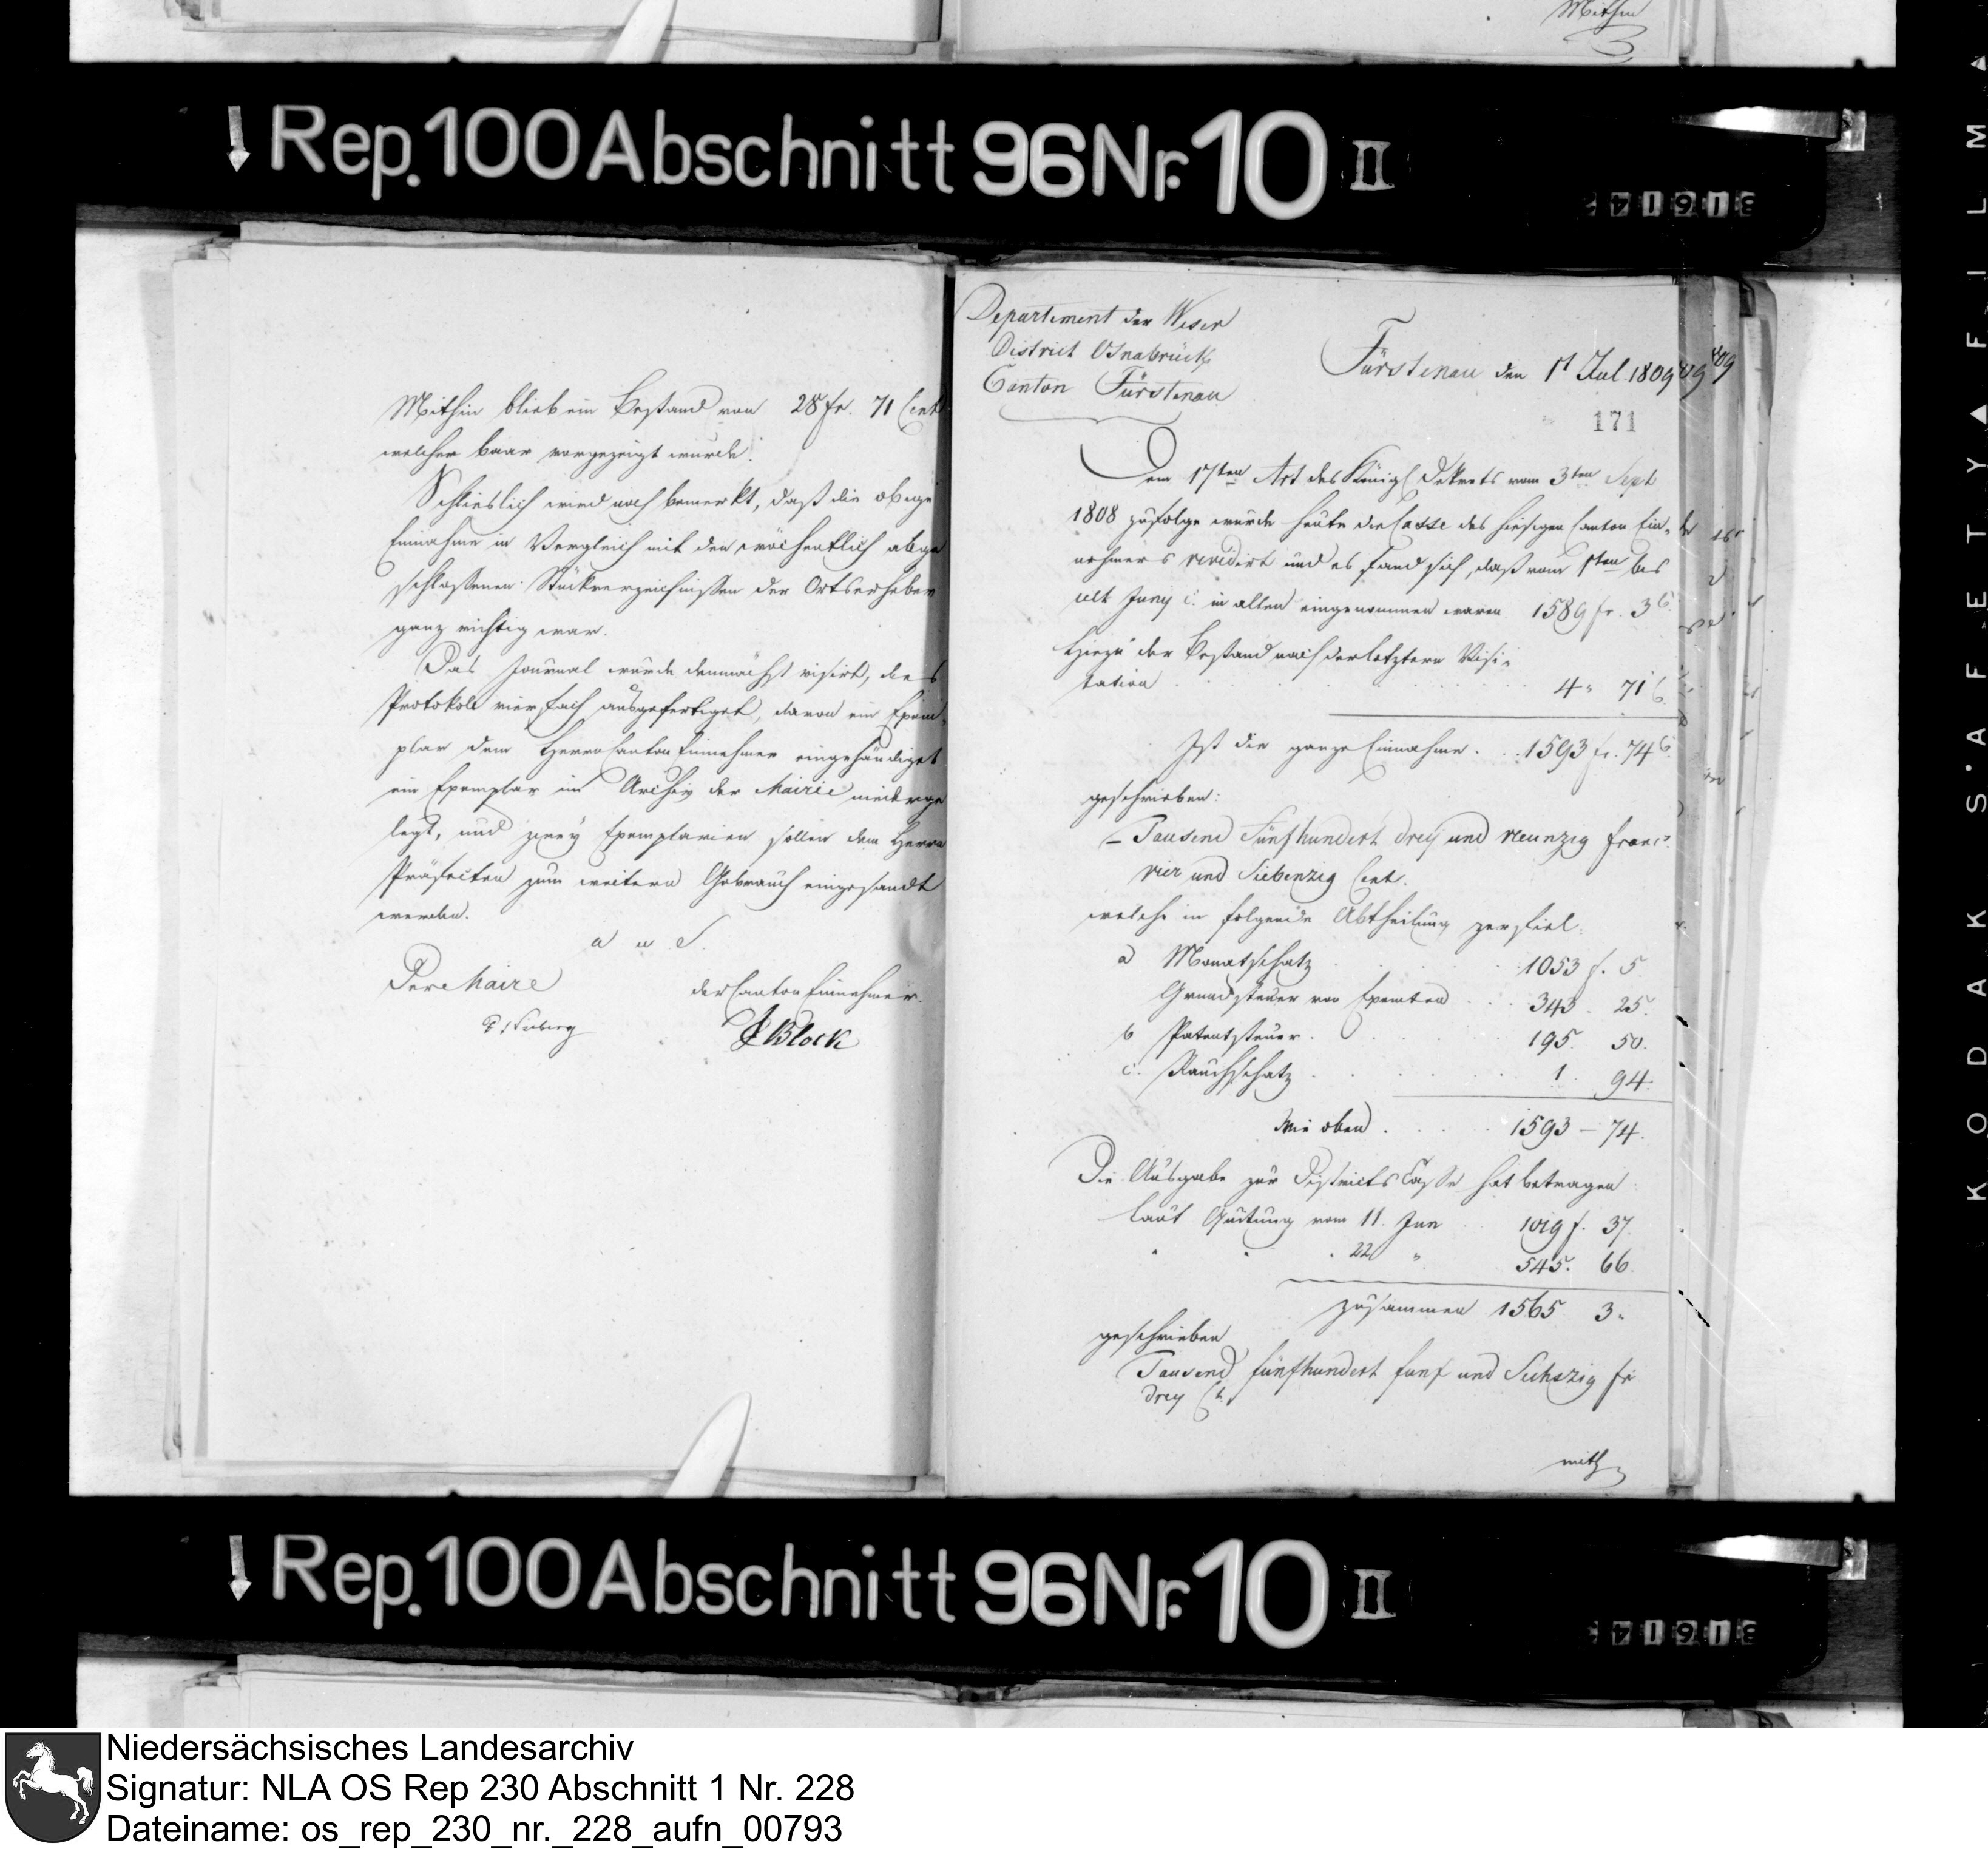 Mithin
Rep. 100 Abschnitt 96 Nr. 10 II
31614
Mithin blieb ein Bestand von 28 fr. 71 Cent
welcher baar vorgezeigt wurde.
Schlieslich wird noch bemerkt, daß die obige
Einnahme in Vergleich mit den wöchentlich abge
schlossenen Stückverzeichnißen der Ortserheber
ganz richtig war.
Das Journal wurde demnächst visirt, dies
Protokoll vierfach ausgefertiget, davon ein Exem-
plar dem Herrn Canton Einnehmer eingehändiget
ein Exemplar im Archiv der Mairie niederge
legt, und zwey Exemplarien sollen dem Herrn
Präfecten zum weitern Gebrauch eingesandt
werden.
a u S.
Der Maire
der Canton Einnehmer.
Block
Departement der Weser
District Osnabrück
Canton Fürstenau
Fürstenau den 1t Jul 1809
171
Dem 17ten Art des Königl Dekrets vom 3ten Sept
1808 zufolge wurde heute die Casse des hiesigen Canton Ein-
nehmers revidirt und es fand sich, daß vom 1ten bis
ult Juny c. in allen eingenommen waren 1589 fr. 3 c.
Hiezu der Bestand nach der letztern Visi-
tation 4 " 71 c
Ist die ganze Einnahme . . 1593 fr. 74 c.
geschrieben:
Tausend Fünfhundert drey und neunzig franc.
vier und Siebenzig Cent.
welche in folgende Abtheilung zerfiel:
a Monatschatz 1053 f. 5.
Grundsteuer von Exemten 343. 25.
b Patentsteuer. 195. 50.
c. Rauchschatz 1. 94.
Wie oben . 1593 - 74.
Die Ausgabe zur Districts Casse hat betragen
laut Quitung vom 11. Jun 1019 f. 37.
" " " 22 " 545. 66.
zusammen 1565 3.
geschrieben
Tausend fünfhundert fünf und Sechszig fr
drey Ct.
mith
KODAK SAFETY FILM
Rep. 100 Abschnitt 96 Nr. 10 II
31614
Niedersächsisches Landesarchiv
Signatur: NLA OS Rep 230 Abschnitt 1 Nr. 228
Dateiname: os_rep_230_nr._228_aufn_00793